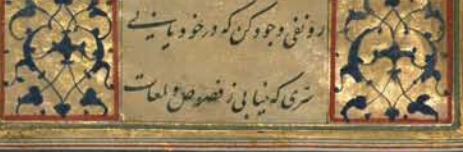 رو نفی وجود کن که در خود یابی
سری که نیابی ز فصوص و لمعات